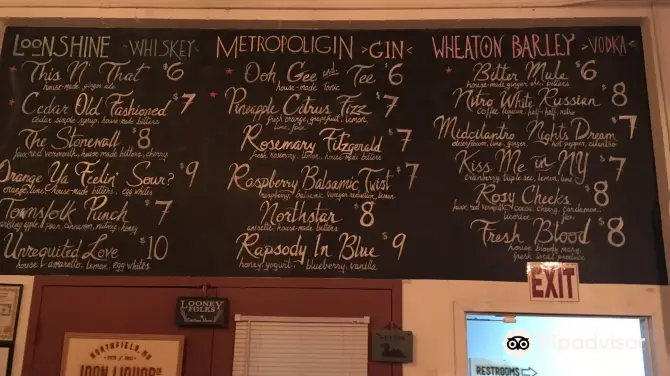 LOONSHINE <WHISKEY<
This N' That $6
house-made ginger ale
Cedar Old Fashioned $7
cedar simple syrup, house made bitters
The Stonewall $8
house-made bitters, cherry
Orange Ya Feelin' Sour? $9
orange, lime, house-made bitters, egg whites
Townsfolk Punch $7
cinnamon, nutmeg, honey
Unrequited Love $10
house amaretto, lemon, egg whites
METROPOLIGIN >GIN<
Ooh, Gee and Tee $6
house-made tonic
Pineapple Citrus Fizz $7
fresh orange, grapefruit, lemon,
lime, juice
Rosemary Fitzgerald $7
fresh rosemary, lemon, house made bitters
Raspberry Balsamic Twist $7
raspberry, balsamic vinegar reduction, lemon
Northstar $8
anisette, house-made bitters
Rapsody In Blue $9
honey, yogurt, blueberry, vanilla
WHEATON BARLEY >VODKA<
Bitter Mule $6
house-made ginger ale, bitters
Nitro White Russian $8
coffee liqueur, half-half, nitro
Midcilantro Nights Dream $7
elderflower, lime, ginger, hot pepper, cilantro
Kiss Me in NY $7
cranberry, triple sec, lemon, lime
Rosy Cheeks $8
cocoa, cherry, cardamom,
licorice
Fresh Blood $8
house bloody mary,
fresh local produce
EXIT
LOONEY
FOLKS
NORTHFIELD, MN
LOON LIQUOR CO
RESTROOMS
Tripadvisor